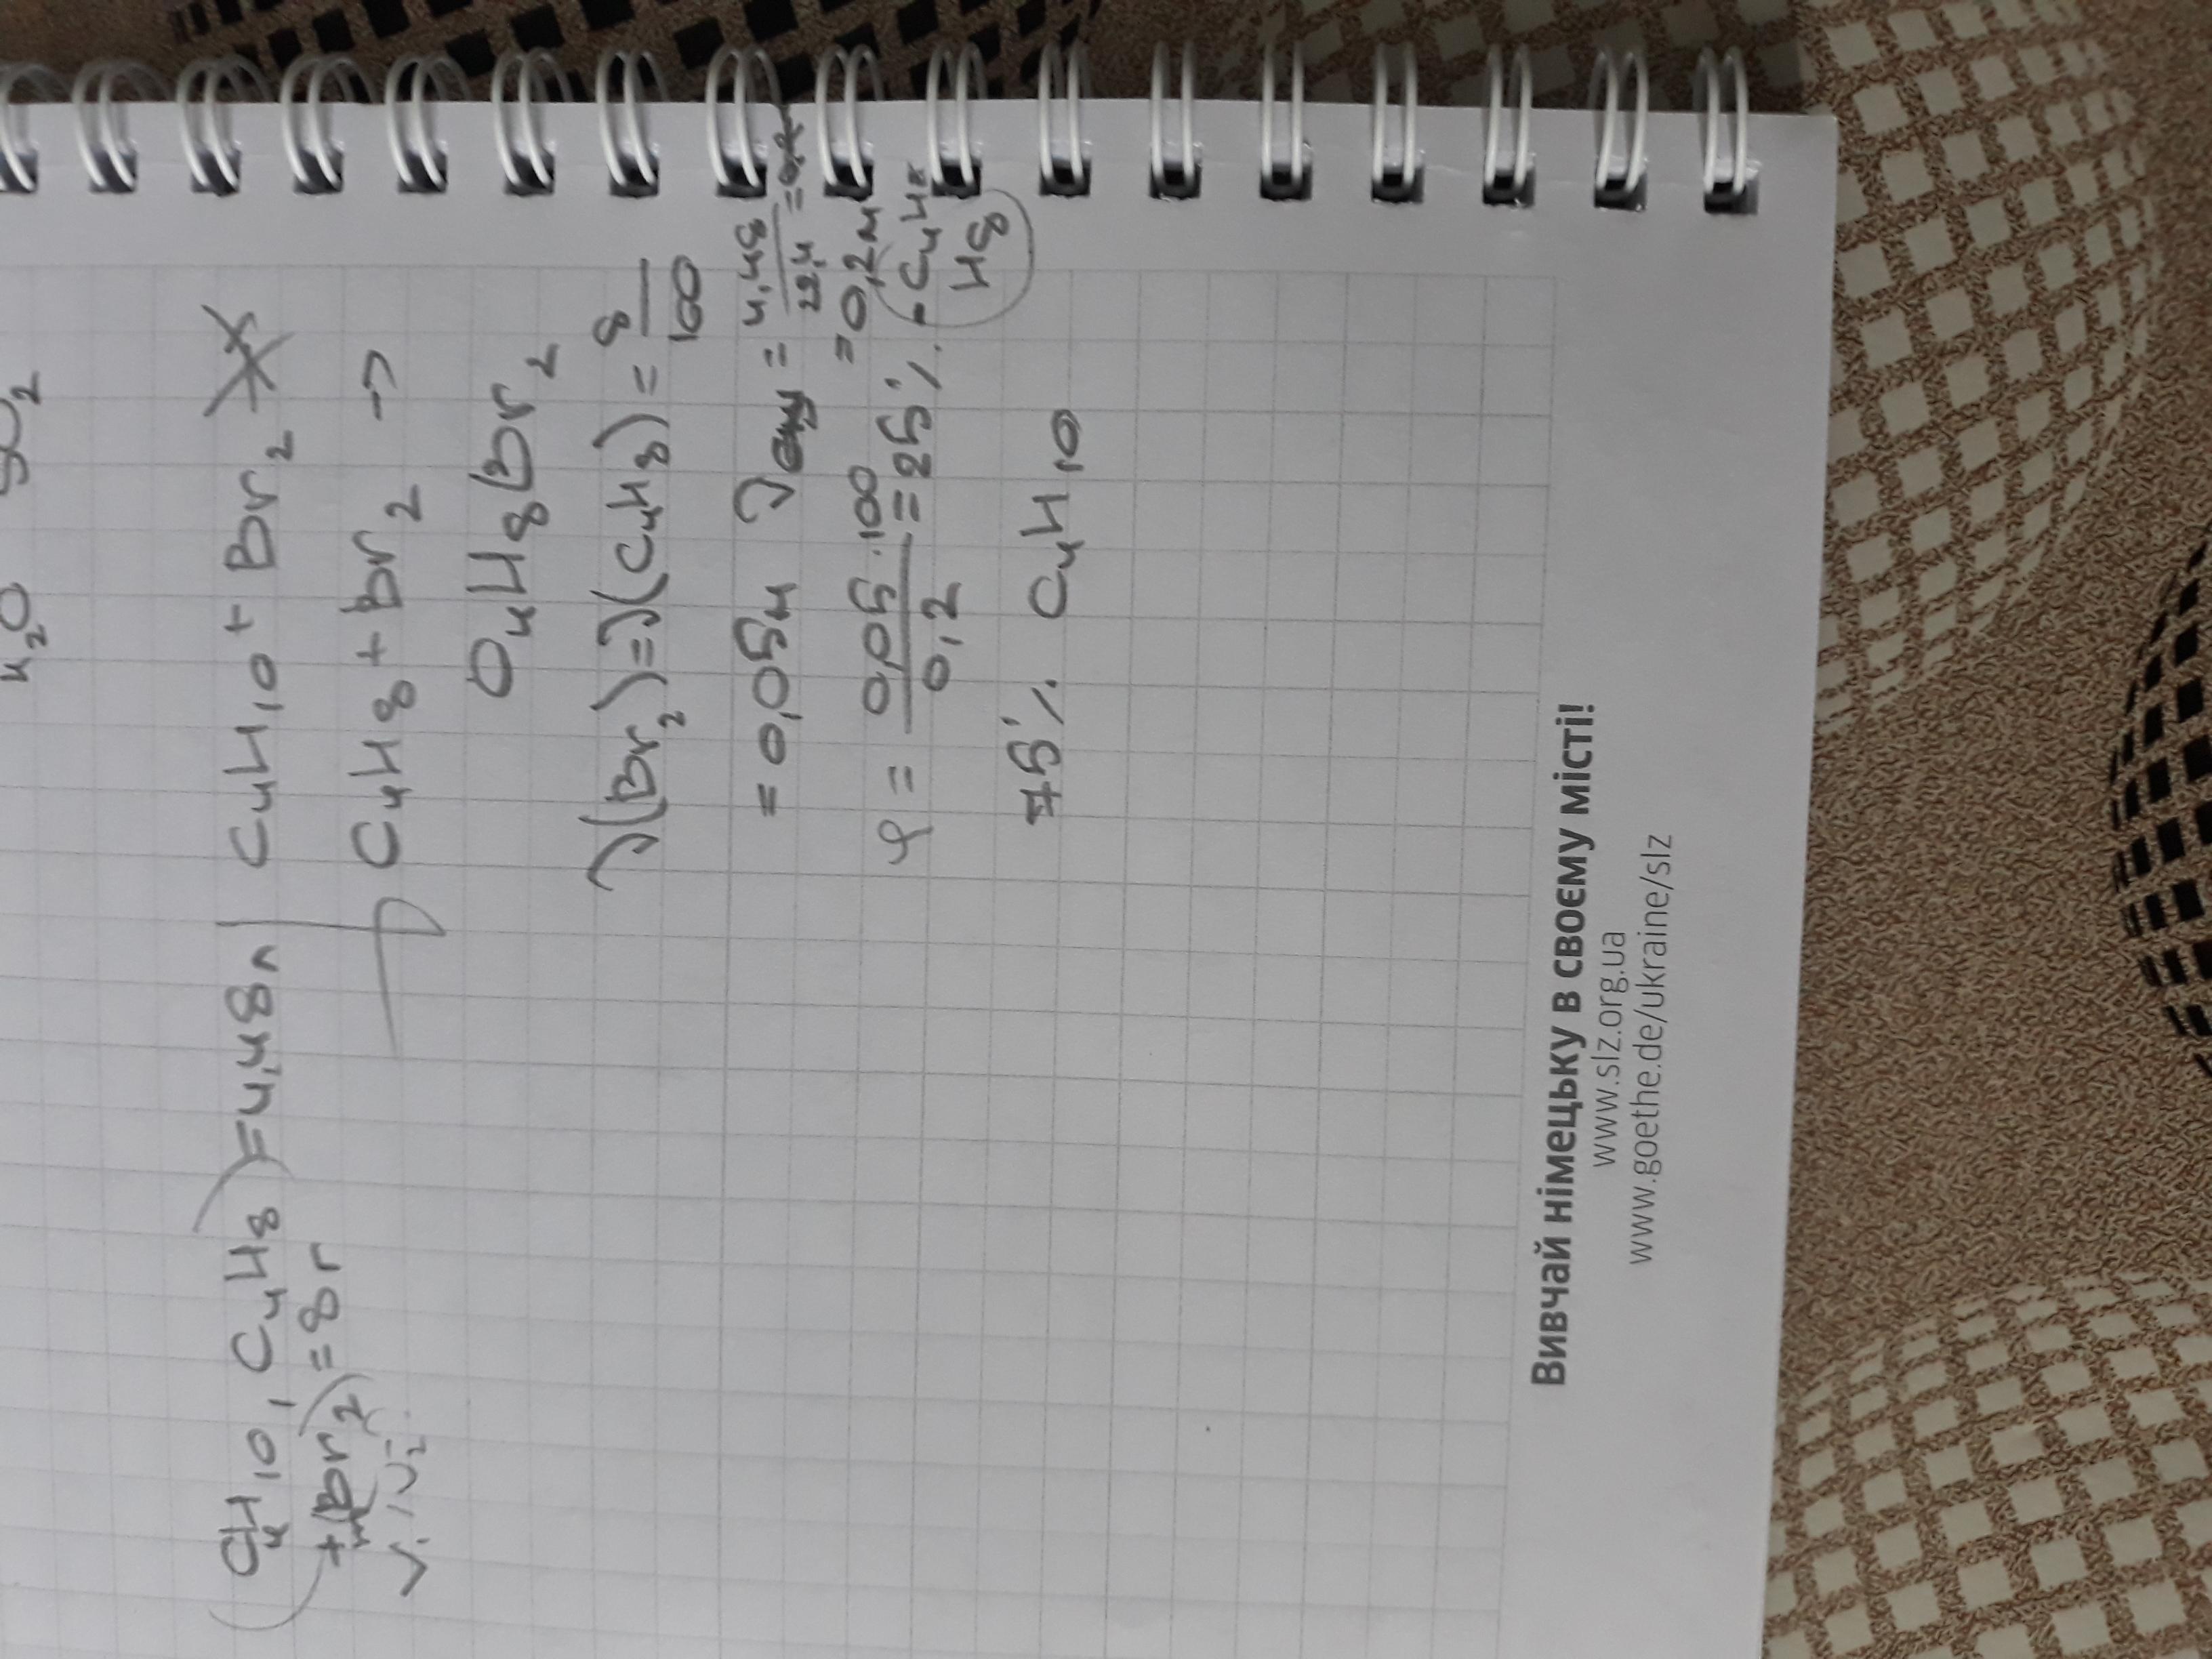 H₂O SO₂
(C₄H₁₀, C₄H₈) = 4,48л
+ m(Br₂) = 8г
C₄H₁₀ + Br₂
C₄H₈ + Br₂ →
C₄H₈Br₂
ν(Br₂) = ν(C₄H₈) = 8/160
= 0,05м ν = 4,48/22,4 =
= 0,2м
φ = 0,05·100/0,2 = 25% - C₄H₈
H8
75% C₄H₁₀
Вивчай німецьку в своєму місті!
www.slz.org.ua
www.goethe.de/ukraine/slz